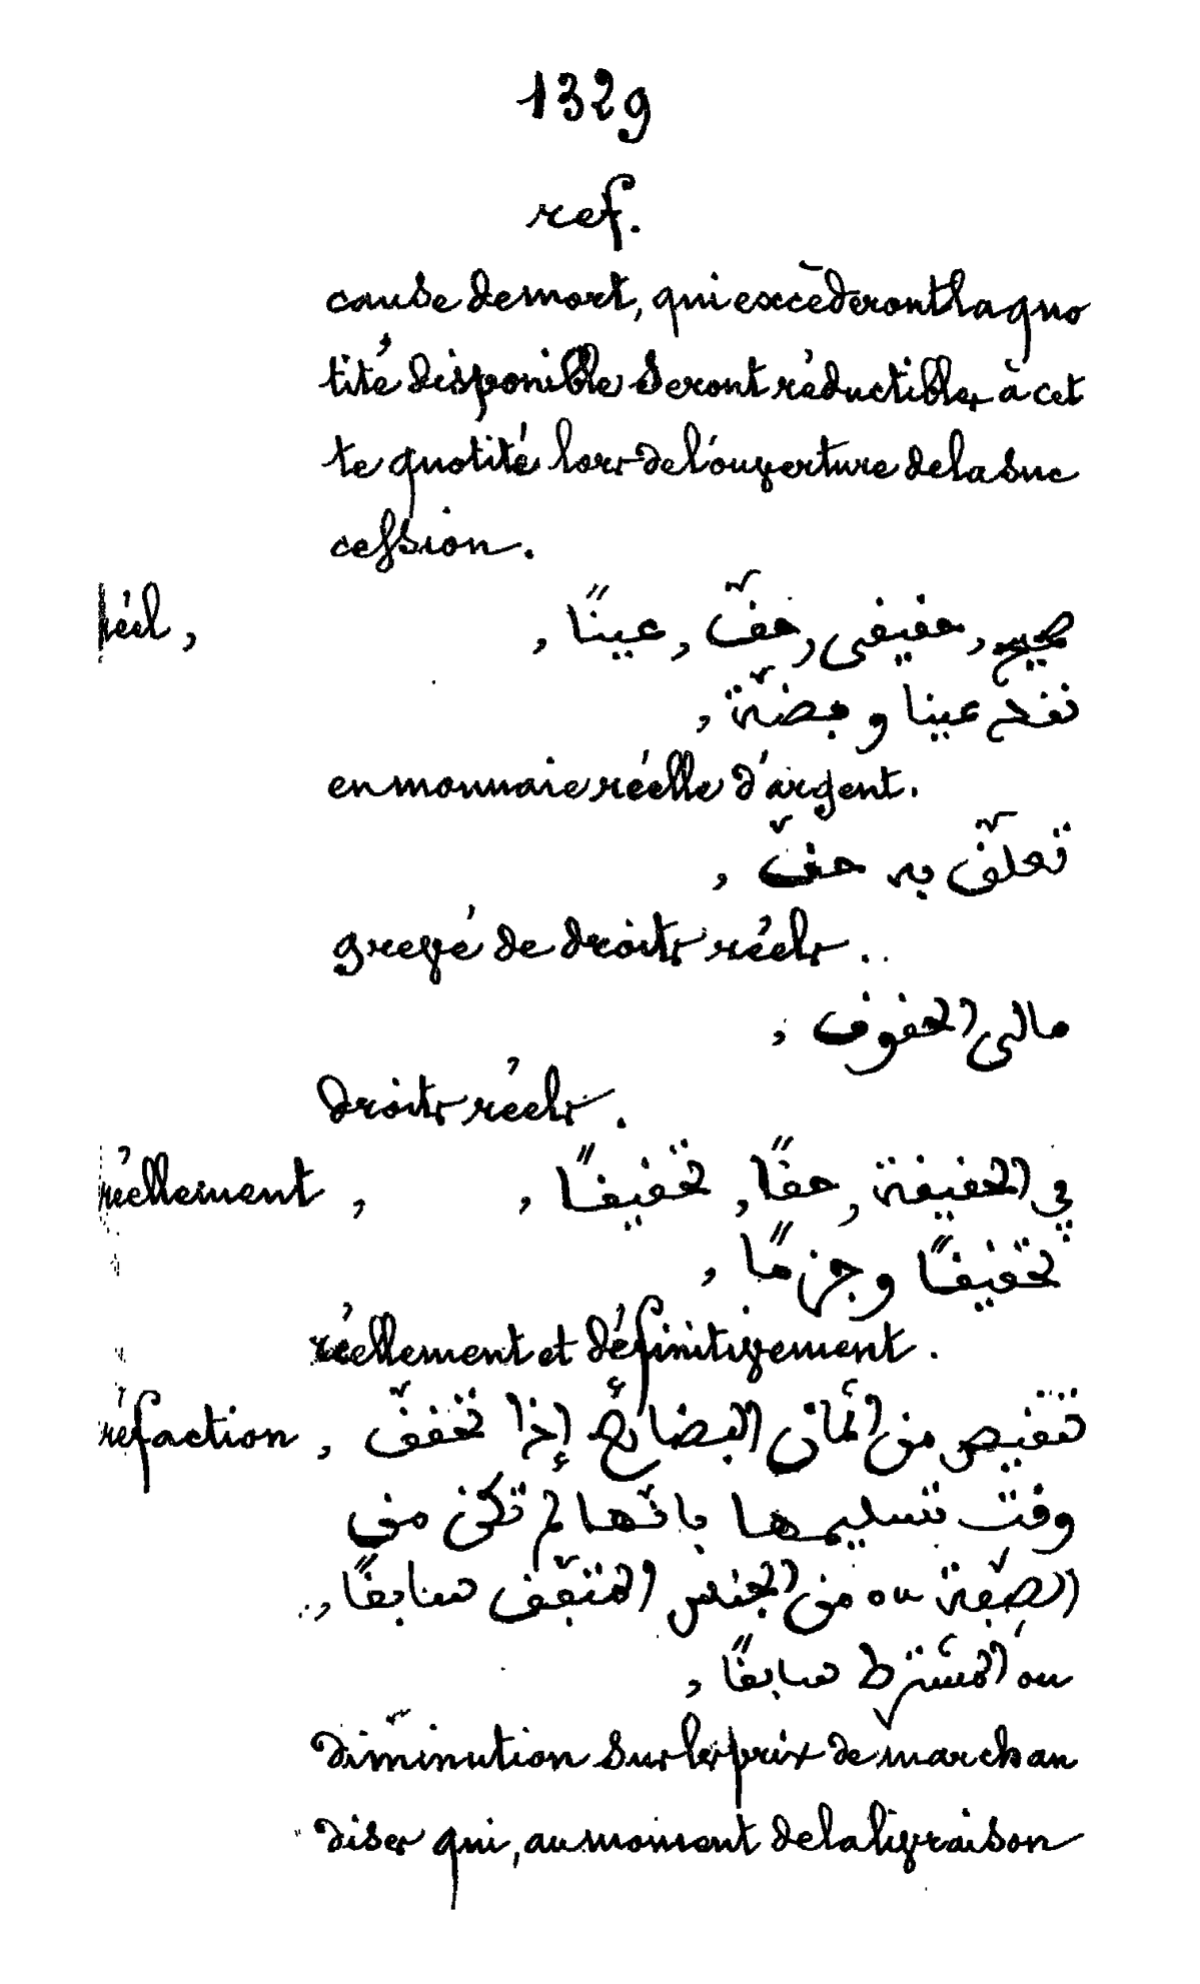 1329
ref.
cause de mort, qui excèderont la quo
tité disponible seront réductibles à cet
te quotité lors de l'ouverture de la suc
cession.
réel, صحيح, حقيقي, حقّ, عينًا,
نقدا عينا و فضّة,
en monnaie réelle d'argent.
تعلّق به حقّ,
grevé de droits réels.
مالى الحقوق,
droits réels.
réellement, في الحقيقة, حقًا, تحقيقًا,
تحقيقًا وجزمًا,
réellement et définitivement.
réfaction, تنقيص من اثمان البضائع إذا تحقّق
وقت تسليمها بانّها لم تكن من
الصّفة ou من الجنس المتّفق سابقًا,
ou المشترط سابقًا,
diminution sur les prix de marchan
dises qui, au moment de la livraison